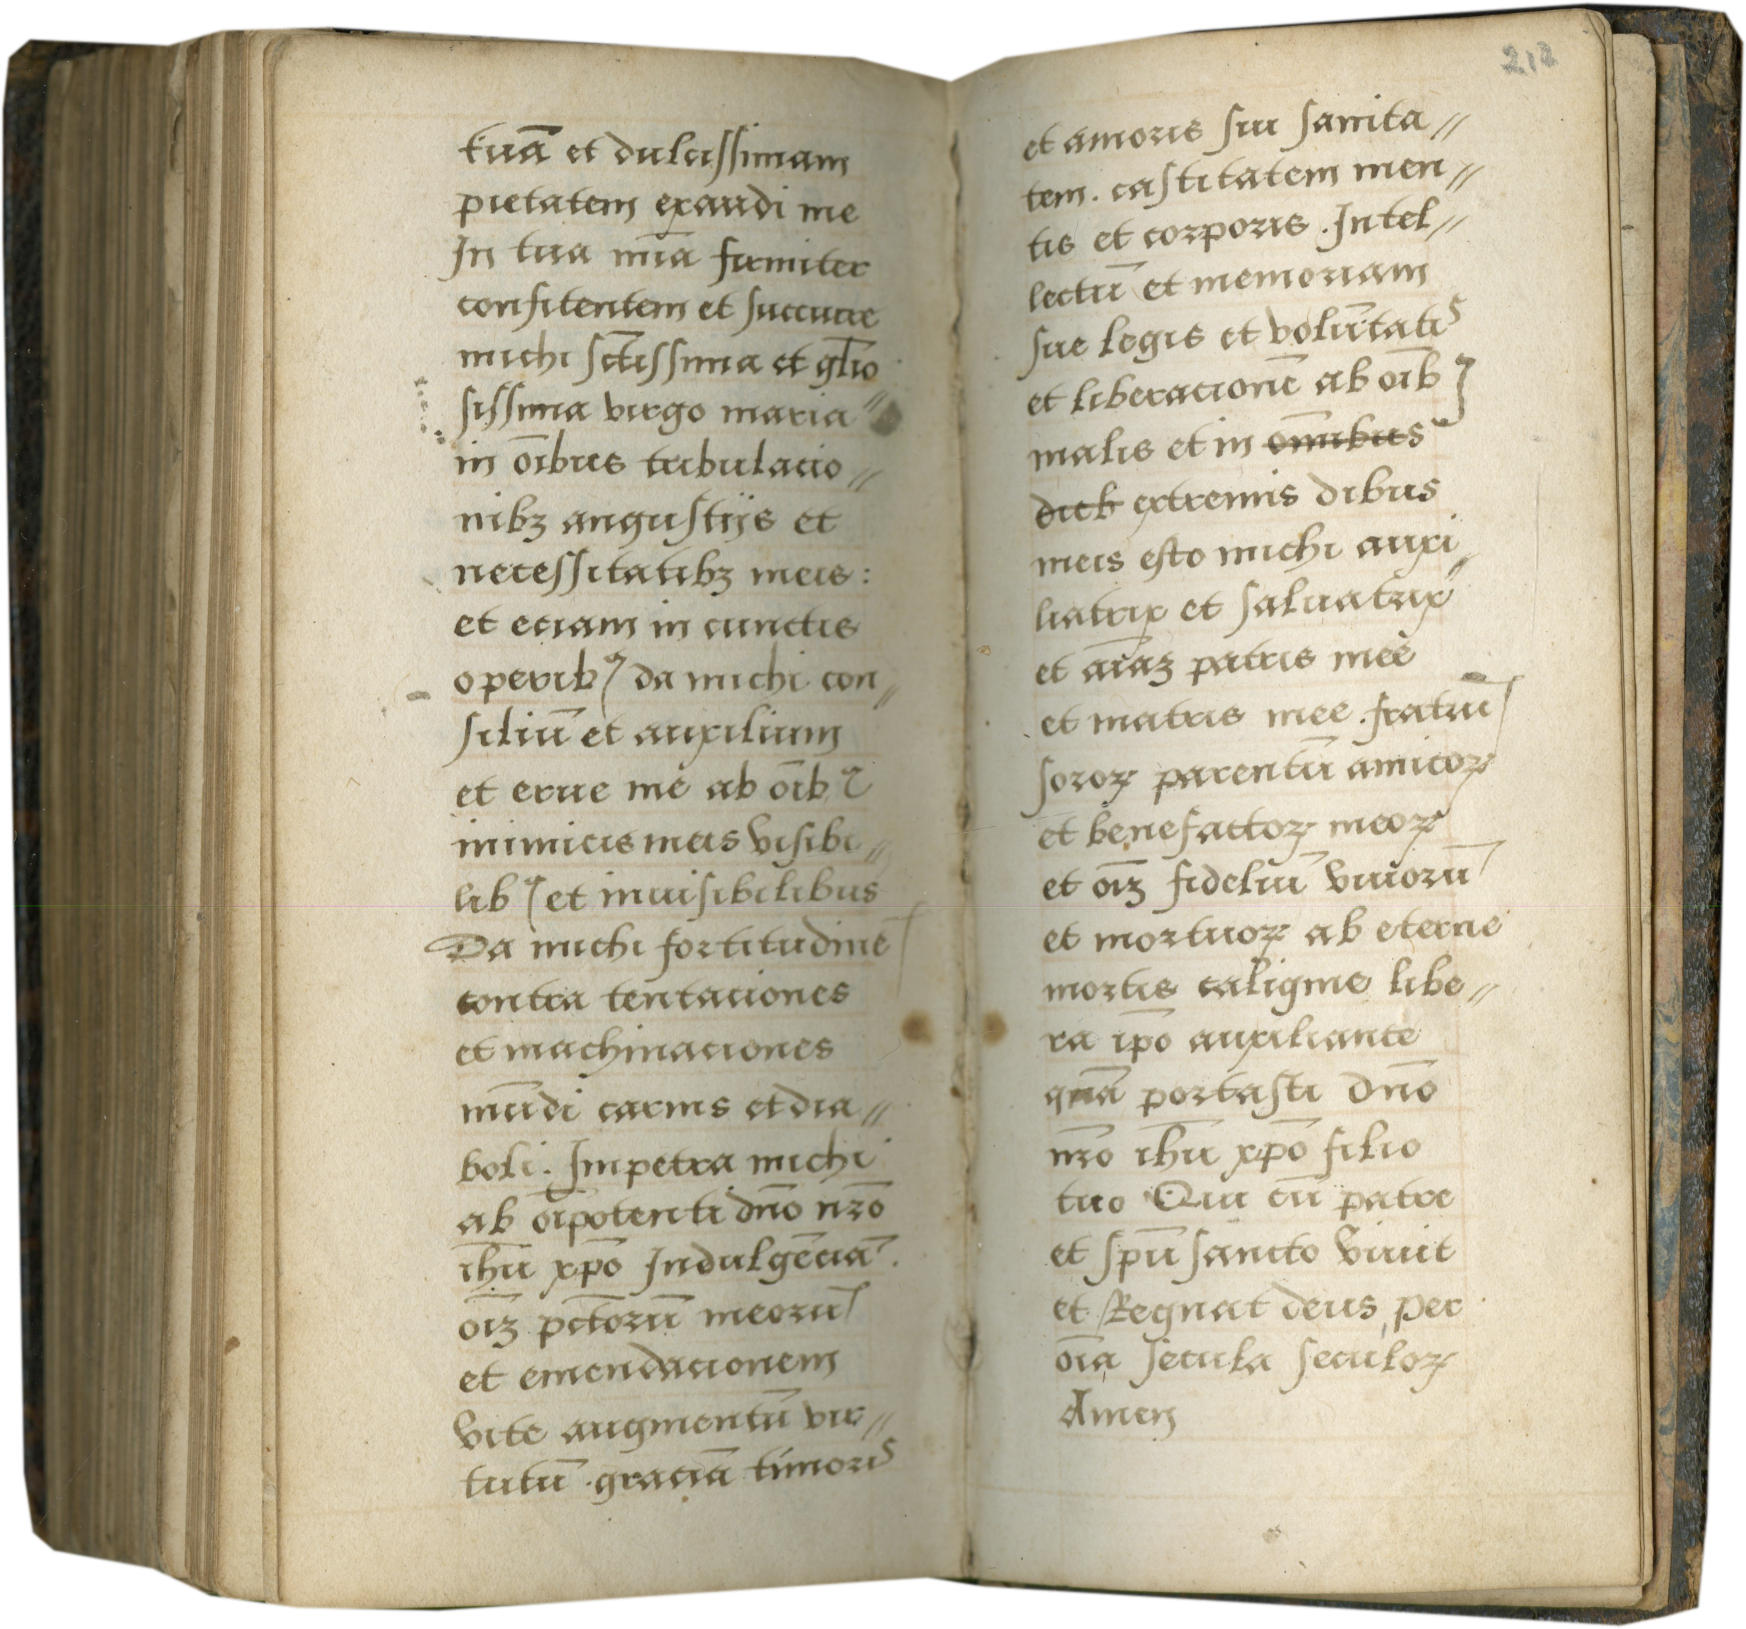 tuā et dulcissimam
pietatem exaudi me
In tua mīa firmiter
confitentem et succurre
michi sctissima et glīo
sissima virgo maria //
in oībus tribulacio //
nibꝫ angustijs et
necessitatibꝫ meis:
et eciam in cunctis
operibꝰ da michi con //
siliū et auxilium
et erue me ab oībꝰ
inimicis meis visibi //
libꝰ et inuisibilibus
Da michi fortitudinē
contra tentaciones
et machinaciones
mūdi carnis et dia //
boli. Impetra michi
ab oīpotenti dn̄o nr̄o
ih̄u xp̄o Indulgēciā.
oīꝫ pctorū meorū
et emendacionem
vite augmentū vir //
tutū. graciā timoris
212
et amoris sui sanita //
tem. castitatem men //
tis et corporis. Intel //
lectū et memoriam
sue legis et volūtatis
et liberacionē ab oībꝰ
malis et in omnibus
dieb extremis dibus
meis esto michi auxi //
liatrix et saluatrix
et aīaꝫ patris mee
et matris mee. fratrū
soroꝝ parentū amicoꝝ
et benefactoꝝ meoꝝ
et oīꝫ fideliū viuorū
et mortuoꝝ ab eterne
mortis caligine libe //
ra ip̄o auxiliante
quā portasti dn̄o
nr̄o ih̄u xp̄o filio
tuo Qui cū patre
et spū sancto viuit
et Regnat deus, per
oīa secula seculoꝝ
Amen